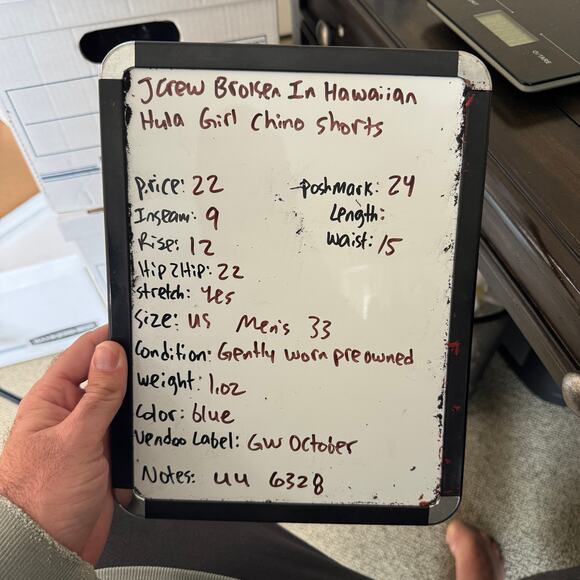 Jcrew Broken In Hawaiian
Hula Girl Chino Shorts
price: 22
poshmark: 24
Inseam: 9
Length:
Rise: 12
waist: 15
Hip 2 Hip: 22
stretch: yes
Size: US Men's 33
Condition: Gently worn preowned
weight: 1.02
Color: blue
Vendoo Label: GW October
Notes: 44 6328